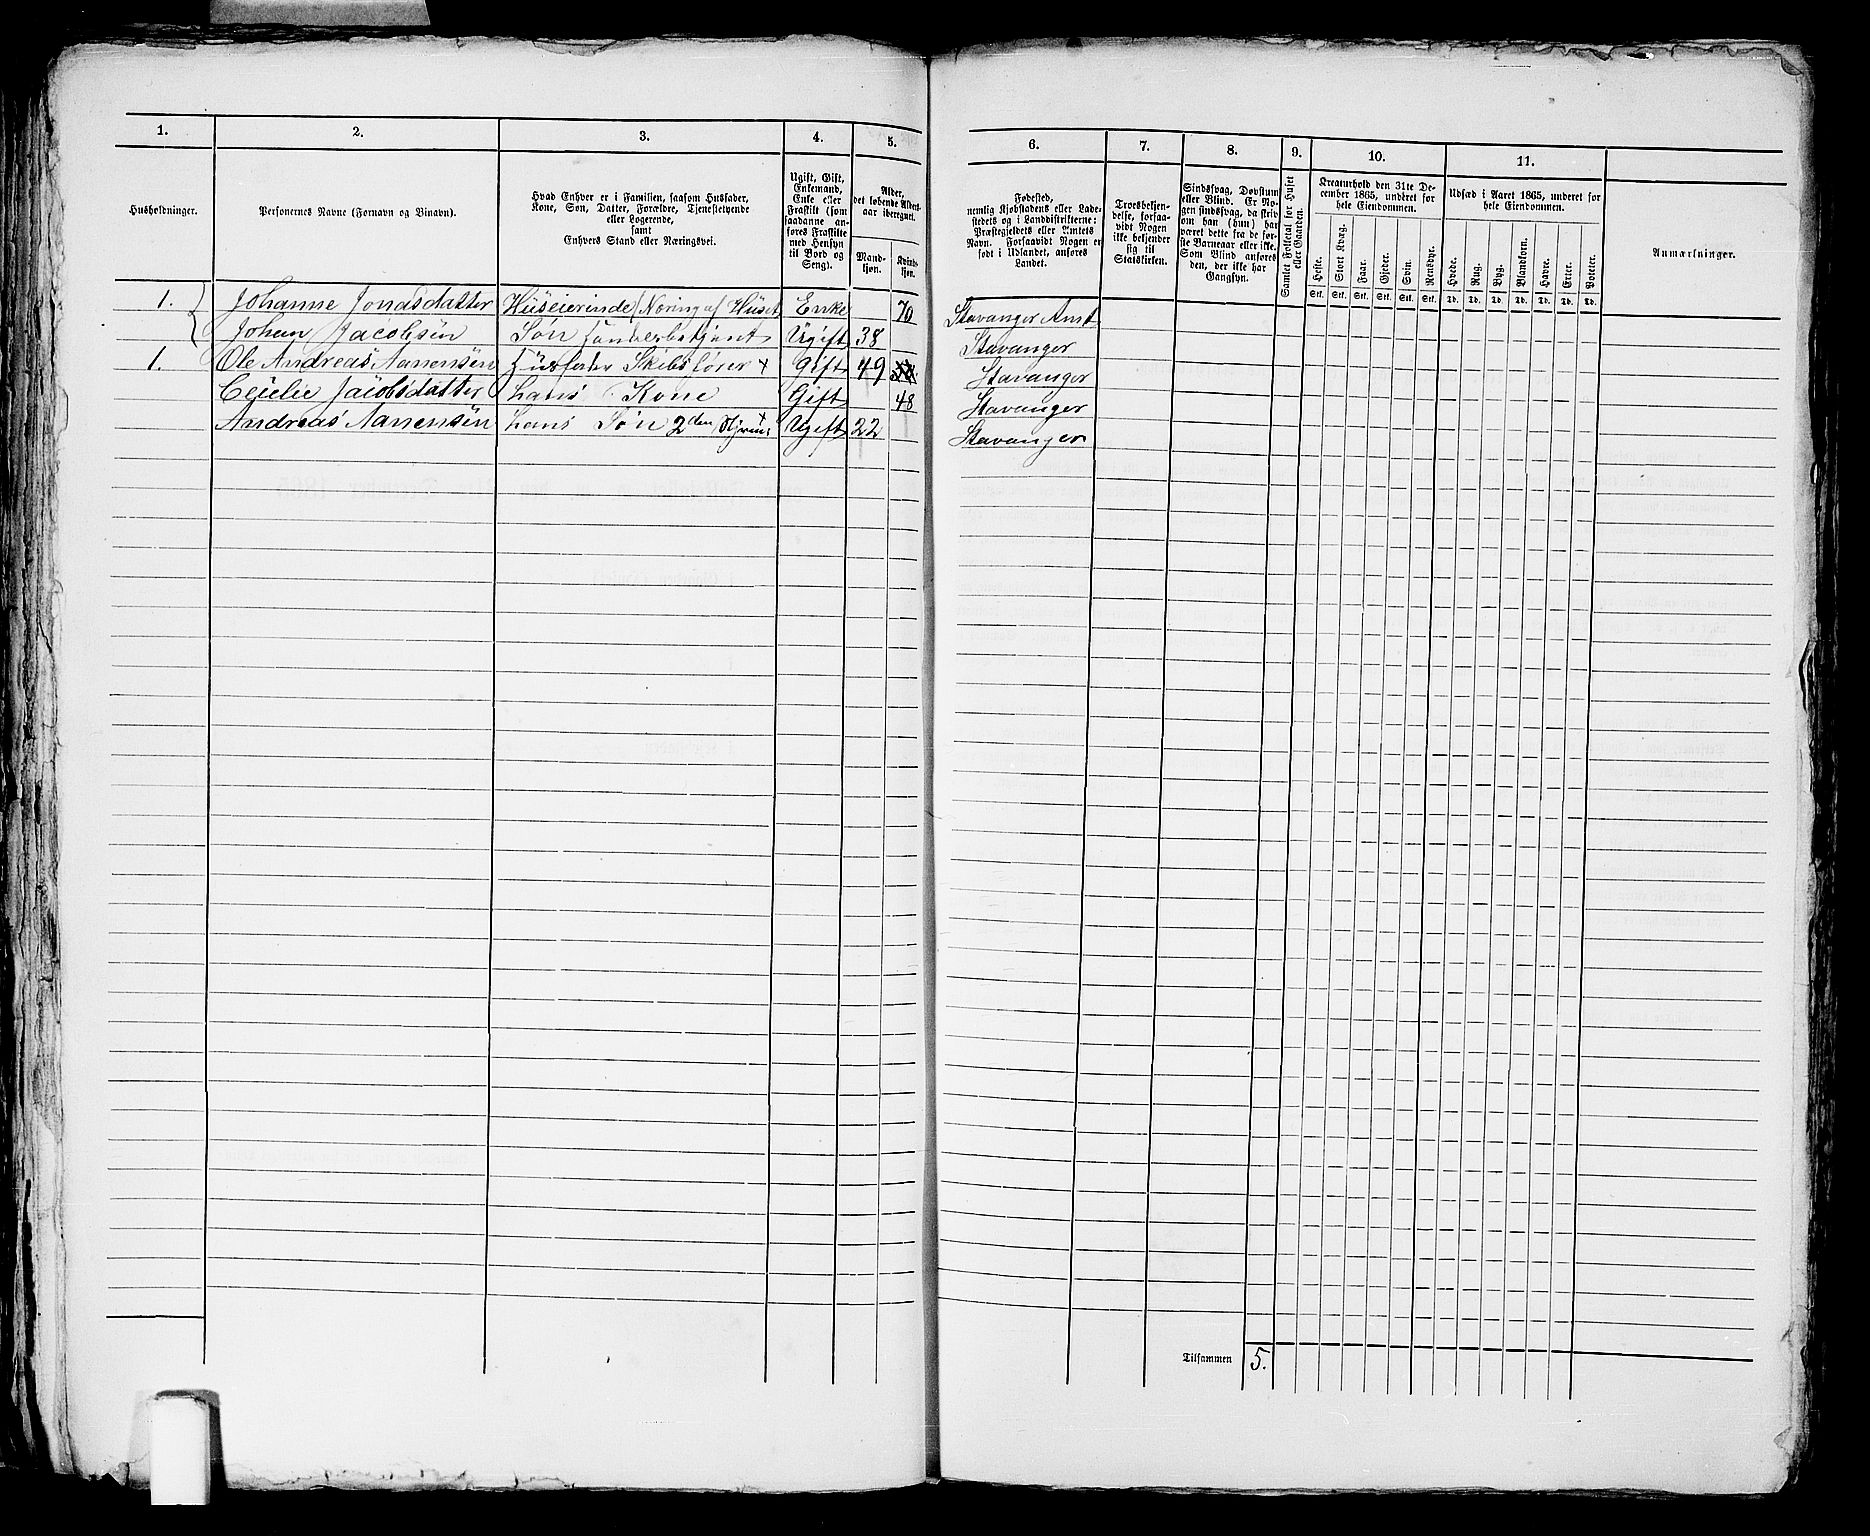 1. 2. 3. 4. 5. 6. 7. 8. 9. 10. 11.
Husholdninger.
Personernes Navne (Fornavn og Binavn).
Hvad Enhver er i Familien, saasom Husfader,
Kone, Søn, Datter, Forældre, Tjenestetyende
eller Logerende,
samt
Enhvers Stand eller Næringsvei.
Ugift, Gift,
Enkemand,
Enke eller
Fraskilt (som
saadanne an-
føres Fraskilte
med Hensyn
til Bord og
Seng).
Alder,
det løbende Alders-
aar iberegnet.
Mand-
kjøn.
Kvinde-
kjøn.
Fødested,
nemlig Kjøbstadens eller Lade-
stedets og i Landdistrikterne:
Præstegjeldets eller Amtets
Navn. Forsaavidt Nogen er
født i Udlandet, anføres
Landet.
Troesbekjen-
delse, forsaa-
vidt Nogen
ikke bekjender
sig til
Statskirken.
Sindssvag, Døvstum
eller Blind. Er No-
gen sindssvag, da skriv
om han (hun) har
været dette fra de før-
ste Barneaar eller ikke.
Som Blind anføres
den, der ikke har
Gangsyn.
Samlet Folketal for Huset
eller Gaarden.
Kreaturhold den 31te De-
cember 1865, underet for
hele Eiendommen.
Heste. Stort Kvæg. Faar. Gjeder. Svin. Rensdyr.
Stk. Stk. Stk. Stk. Stk. Stk.
Udsæd i Aaret 1865, underet for
hele Eiendommen.
Hvede. Rug. Byg. Blandkorn. Havre. Erter. Poteter.
Td. Td. Td. Td. Td. Td. Td.
Anmærkninger.
1. Johanne Jonasdatter Huseierinde / Næring af Huset Enke 70 Stavanger Amt
Johan Jacobsen Søn Ugift 38 Stavanger
1. Ole Andreas Aanensen Husfader Skibsfører + Gift 49 Stavanger
Cecilie Jacobsdatter hans Kone Gift 48 Stavanger
Andreas Aanensen hans Søn 2den Styrm: Ugift 22 Stavanger
Tilsammen 5.